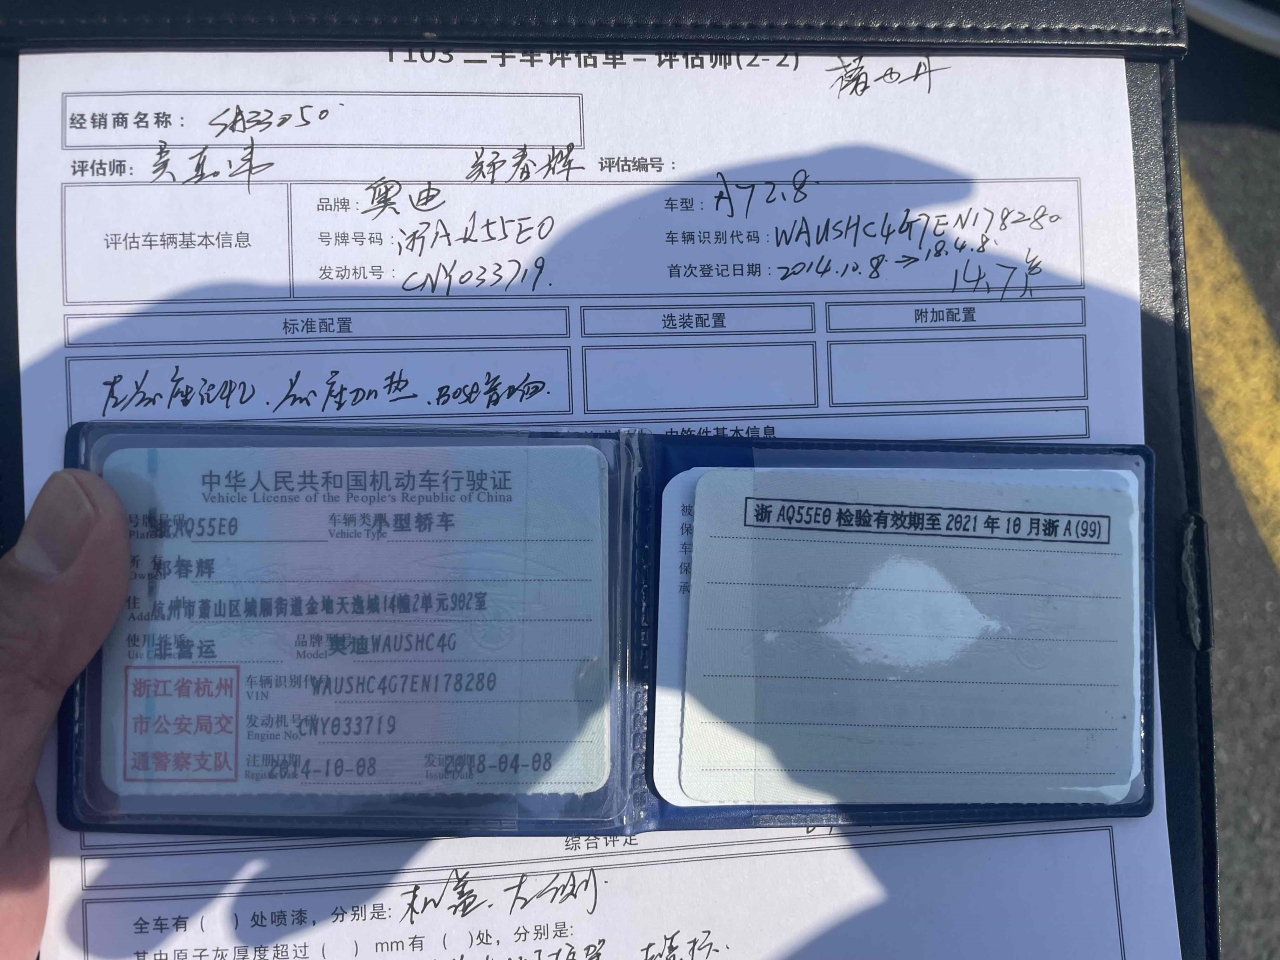 T103 二手车评估单 – 评估师(2-2)
经销商名称： SA33050
评估师： 郑春辉 评估编号：
评估车辆基本信息
品牌：奥迪 车型：A7 2.8
号牌号码：浙AQ55E0 车辆识别代码：WAUSHC4G7EN178280
发动机号：CNY033719. 首次登记日期：2014.10.8. → 18.4.8.
14.7
标准配置 选装配置 附加配置
BOSE音响.
内饰件基本信息
中华人民共和国机动车行驶证
Vehicle License of the People's Republic of China
号牌号码 浙AQ55E0 车辆类型 小型轿车
Vehicle Type
所有 郑春辉
Owner
住 杭州市萧山区城厢街道金地天逸城14幢2单元902室
Address
使用性质 非营运 品牌型号 奥迪WAUSHC4G
Model
浙江省杭州
市公安局交
通警察支队
车辆识别代号 WAUSHC4G7EN178280
VIN
发动机号 CNY033719
Engine No.
注册日期 2014-10-08 发证日期 2018-04-08
Issue Date
被
保
车
保
承
浙 AQ55E0 检验有效期至 2021 年 10 月浙 A (99)
综合评定
全车有（ ）处喷漆，分别是: 机盖. 左
其中原子灰厚度超过（ ）mm有（ ）处，分别是: